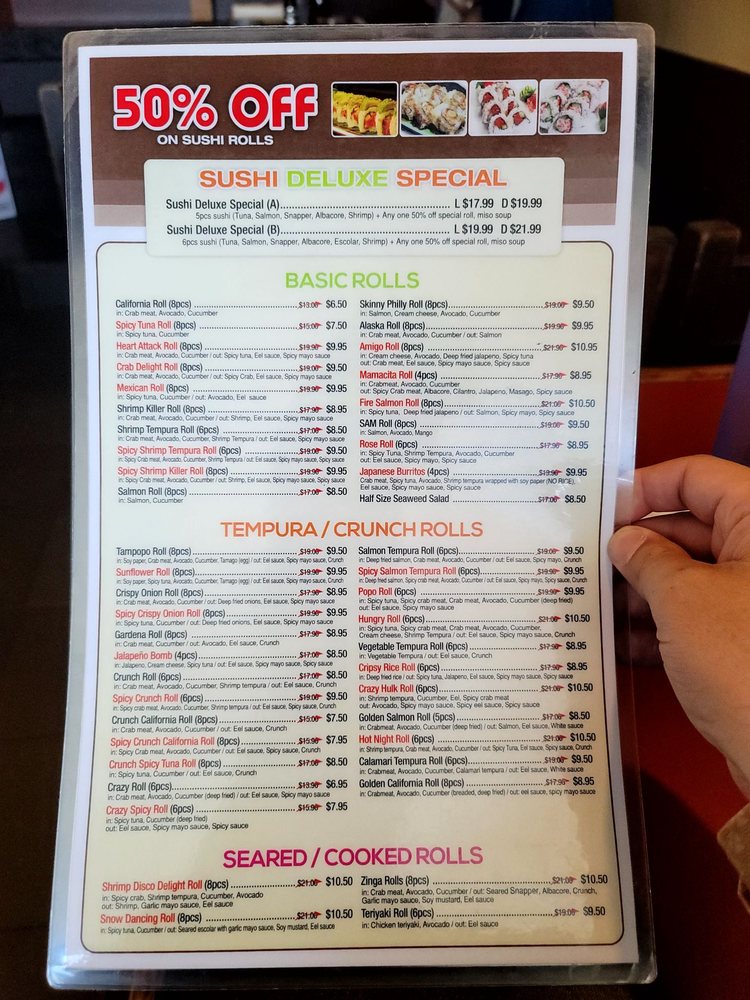 50% OFF
ON SUSHI ROLLS
SUSHI DELUXE SPECIAL
Sushi Deluxe Special (A)........ L $17.99 D $19.99
5pcs sushi (Tuna, Salmon, Snapper, Albacore, Shrimp) + Any one 50% off special roll, miso soup
Sushi Deluxe Special (B)........ L $19.99 D $21.99
6pcs sushi (Tuna, Salmon, Snapper, Albacore, Escolar, Shrimp) + Any one 50% off special roll, miso soup
BASIC ROLLS
California Roll (8pcs) ........ $13.00 $6.50
in: Crab meat, Avocado, Cucumber
Spicy Tuna Roll (8pcs) ........ $15.00 $7.50
in: Spicy tuna, Cucumber
Heart Attack Roll (8pcs) ........ $19.90 $9.95
in: Crab meat, Avocado, Cucumber / out: Spicy tuna, Eel sauce, Spicy mayo sauce
Crab Delight Roll (8pcs) ........ $19.00 $9.50
in: Crab meat, Avocado, Cucumber / out: Spicy Crab, Eel sauce, Spicy mayo sauce
Mexican Roll (8pcs) ........ $19.90 $9.95
in: Spicy tuna, Cucumber / out: Avocado, Eel sauce
Shrimp Killer Roll (8pcs) ........ $17.90 $8.95
in: Crab meat, Avocado, Cucumber / out: Shrimp, Eel sauce, Spicy mayo sauce
Shrimp Tempura Roll (6pcs) ........ $17.00 $8.50
in: Crab meat, Avocado, Cucumber, Shrimp Tempura / out: Eel sauce, Spicy mayo sauce
Spicy Shrimp Tempura Roll (6pcs) ........ $19.00 $9.50
in: Spicy Crab meat, Avocado, Cucumber, Shrimp Tempura / out: Eel sauce, Spicy mayo sauce, Spicy sauce
Spicy Shrimp Killer Roll (8pcs) ........ $19.90 $9.95
in: Spicy Crab meat, Avocado, Cucumber / out: Shrimp, Eel sauce, Spicy mayo sauce, Spicy sauce
Salmon Roll (8pcs) ........ $17.00 $8.50
in: Salmon, Cucumber
Skinny Philly Roll (8pcs) ........ $19.00 $9.50
in: Salmon, Cream cheese, Avocado, Cucumber
Alaska Roll (8pcs) ........ $19.90 $9.95
in: Crab meat, Avocado, Cucumber / out: Salmon
Amigo Roll (8pcs) ........ $21.90 $10.95
in: Cream cheese, Avocado, Deep fried jalapeno, Spicy tuna
out: Crab meat, Eel sauce, Spicy mayo sauce, Spicy sauce
Mamacita Roll (4pcs) ........ $17.90 $8.95
in: Crabmeat, Avocado, Cucumber
out: Spicy Crab meat, Albacore, Cilantro, Jalapeno, Masago, Spicy sauce
Fire Salmon Roll (8pcs) ........ $21.00 $10.50
in: Spicy tuna, Deep fried jalapeno / out: Salmon, Spicy mayo, Spicy sauce
SAM Roll (8pcs) ........ $19.00 $9.50
in: Salmon, Avocado, Mango
Rose Roll (6pcs) ........ $17.90 $8.95
in: Spicy Tuna, Shrimp Tempura, Avocado, Cucumber
out: Eel sauce, Spicy mayo, Spicy sauce
Japanese Burritos (4pcs) ........ $19.90 $9.95
Crab meat, Spicy tuna, Avocado, Shrimp tempura wrapped with soy paper (NO RICE),
Eel sauce, Spicy mayo sauce, Spicy sauce
Half Size Seaweed Salad ........ $17.00 $8.50
TEMPURA / CRUNCH ROLLS
Tampopo Roll (8pcs) ........ $19.00 $9.50
in: Soy paper, Crab meat, Avocado, Cucumber, Tamago (egg) / out: Eel sauce, Spicy mayo sauce, Crunch
Sunflower Roll (8pcs) ........ $19.90 $9.95
in: Soy paper, Spicy tuna, Avocado, Cucumber, Tamago (egg) / out: Eel sauce, Spicy mayo sauce, Crunch
Crispy Onion Roll (8pcs) ........ $17.90 $8.95
in: Crab meat, Avocado, Cucumber / out: Deep fried onions, Eel sauce, Spicy mayo sauce
Spicy Crispy Onion Roll (8pcs) ........ $19.00 $9.50
in: Spicy tuna, Cucumber / out: Deep fried onions, Eel sauce, Spicy mayo sauce
Gardena Roll (8pcs) ........ $17.90 $8.95
in: Crab meat, Cucumber / out: Avocado, Eel sauce, Crunch
Jalapeño Bomb (4pcs) ........ $17.00 $8.50
in: Jalapeno, Cream cheese, Spicy tuna / out: Eel sauce, Spicy mayo sauce, Spicy sauce
Crunch Roll (6pcs) ........ $17.00 $8.50
in: Crab meat, Avocado, Cucumber, Shrimp tempura / out: Eel sauce, Crunch
Spicy Crunch Roll (6pcs) ........ $19.00 $9.50
in: Spicy crab meat, Avocado, Cucumber, Shrimp tempura / out: Eel sauce, Spicy sauce, Crunch
Crunch California Roll (8pcs) ........ $15.00 $7.50
in: Crab meat, Avocado, Cucumber / out: Eel sauce, Crunch
Spicy Crunch California Roll (8pcs) ........ $15.90 $7.95
in: Spicy Crab meat, Avocado, Cucumber / out: Eel sauce, Spicy sauce, Crunch
Crunch Spicy Tuna Roll (8pcs) ........ $17.00 $8.50
in: Spicy tuna, Cucumber / out: Eel sauce, Crunch
Crazy Roll (6pcs) ........ $13.90 $6.95
in: Crab meat, Avocado, Cucumber (deep fried) / out: Eel sauce, Spicy mayo sauce
Crazy Spicy Roll (6pcs) ........ $15.90 $7.95
in: Spicy tuna, Cucumber (deep fried)
out: Eel sauce, Spicy mayo sauce, Spicy sauce
Salmon Tempura Roll (6pcs) ........ $19.00 $9.50
in: Deep fried salmon, Crab meat, Avocado, Cucumber / out: Eel sauce, Spicy mayo, Crunch
Spicy Salmon Tempura Roll (6pcs) ........ $19.90 $9.95
in: Deep fried salmon, Spicy crab meat, Avocado, Cucumber / out: Eel sauce, Spicy mayo, Spicy sauce, Crunch
Popo Roll (6pcs) ........ $19.90 $9.95
in: Spicy tuna, Spicy crab meat, Crab meat, Avocado, Cucumber (deep fried)
out: Eel sauce, Spicy mayo sauce
Hungry Roll (6pcs) ........ $21.00 $10.50
in: Spicy tuna, Spicy crab meat, Crab meat, Avocado, Cucumber,
Cream cheese, Shrimp Tempura / out: Eel sauce, Spicy mayo sauce, Crunch
Vegetable Tempura Roll (6pcs) ........ $17.90 $8.95
in: Vegetable Tempura / out: Eel sauce, Crunch
Cripsy Rice Roll (6pcs) ........ $17.90 $8.95
in: Deep fried rice / out: Spicy tuna, Jalapeno, Eel sauce, Spicy mayo sauce, Spicy sauce
Crazy Hulk Roll (6pcs) ........ $21.00 $10.50
in: Shrimp tempura, Cucumber, Eel, Spicy crab meat
out: Avocado, Spicy mayo sauce, Eel sauce, Spicy sauce
Golden Salmon Roll (5pcs) ........ $17.00 $8.50
in: Crabmeat, Avocado, Cucumber (deep fried) / out: Salmon, Eel sauce, White sauce
Hot Night Roll (6pcs) ........ $21.00 $10.50
in: Shrimp tempura, Crab meat, Avocado, Cucumber / out: Spicy Tuna, Eel sauce, Spicy sauce, Crunch
Calamari Tempura Roll (6pcs) ........ $19.00 $9.50
in: Crabmeat, Avocado, Cucumber, Calamari tempura / out: Eel sauce, White sauce
Golden California Roll (8pcs) ........ $17.90 $8.95
in: Crabmeat, Avocado, Cucumber (breaded, deep fried) / out: eel sauce, spicy mayo sauce
SEARED / COOKED ROLLS
Shrimp Disco Delight Roll (8pcs) ........ $21.00 $10.50
in: Spicy crab, Shrimp tempura, Cucumber, Avocado
out: Shrimp, Garlic mayo sauce, Eel sauce
Snow Dancing Roll (8pcs) ........ $21.00 $10.50
in: Spicy tuna, Cucumber / out: Seared escolar with garlic mayo sauce, Soy mustard, Eel sauce
Zinga Rolls (8pcs) ........ $21.00 $10.50
in: Crab meat, Avocado, Cucumber / out: Seared Snapper, Albacore, Crunch,
Garlic mayo sauce, Soy mustard, Eel sauce
Teriyaki Roll (6pcs) ........ $19.00 $9.50
in: Chicken teriyaki, Avocado / out: Eel sauce